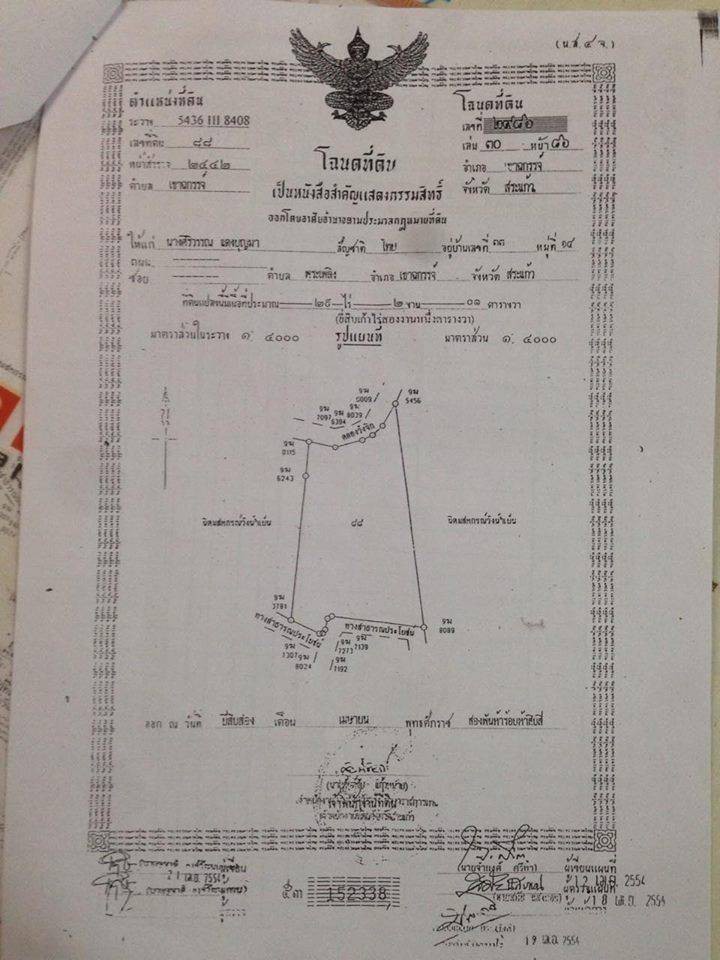 (น.ส.๔ จ.)
ตำแหน่งที่ดิน
ระวาง 5436 III 8408
เลขที่ดิน ๘๘
หน้าสำรวจ ๒๔๔๒
ตำบล เขาฉกรรจ์
โฉนดที่ดิน
เลขที่ ๒๙๘๖
เล่ม ๓๐ หน้า ๘๖
อำเภอ เขาฉกรรจ์
จังหวัด สระแก้ว
โฉนดที่ดิน
เป็นหนังสือสำคัญแสดงกรรมสิทธิ์
ออกโดยอาศัยอำนาจตามประมวลกฎหมายที่ดิน
ให้แก่ นางศิริวรรณ แดงบุญมา สัญชาติ ไทย อยู่บ้านเลขที่ ๓๓ หมู่ที่ ๑๔
ถนน
ซอย ตำบล พระเพลิง อำเภอ เขาฉกรรจ์ จังหวัด สระแก้ว
ที่ดินแปลงนี้มีเนื้อที่ประมาณ ๒๙ ไร่ ๒ งาน ๐๑ ตารางวา
(ยี่สิบเก้าไร่สองงานหนึ่งตารางวา)
มาตราส่วนในระวาง ๑: ๔๐๐๐ รูปแผนที่ มาตราส่วน ๑: ๔๐๐๐
เหนือ
ฉฆ 5456
ฉฆ 7097
ฉฆ 8394
ฉฆ 8039
ฉฆ
คลองวังจิก
ฉฆ
ฉฆ 6243
นิคมสหกรณ์วังน้ำเย็น
๘๘
นิคมสหกรณ์วังน้ำเย็น
ฉฆ 3781
ทางสาธารณประโยชน์
ฉฆ 1307
ฉฆ 8024
ทางสาธารณประโยชน์
ฉฆ 7273
ฉฆ 7139
ฉฆ 7192
ฉฆ 8089
ออก ณ วันที่ ยี่สิบสอง เดือน เมษายน พุทธศักราช สองพันห้าร้อยห้าสิบสี่
เจ้าพนักงานที่ดิน
21 เม.ย. 2554
ฉ๓ 152338
(นายจำนงค์ ศรีทา) ผู้เขียนแผนที่
12 เม.ย. 2554
ผู้ตรวจแผนที่
18 เม.ย. 2554
19 เม.ย. 2554